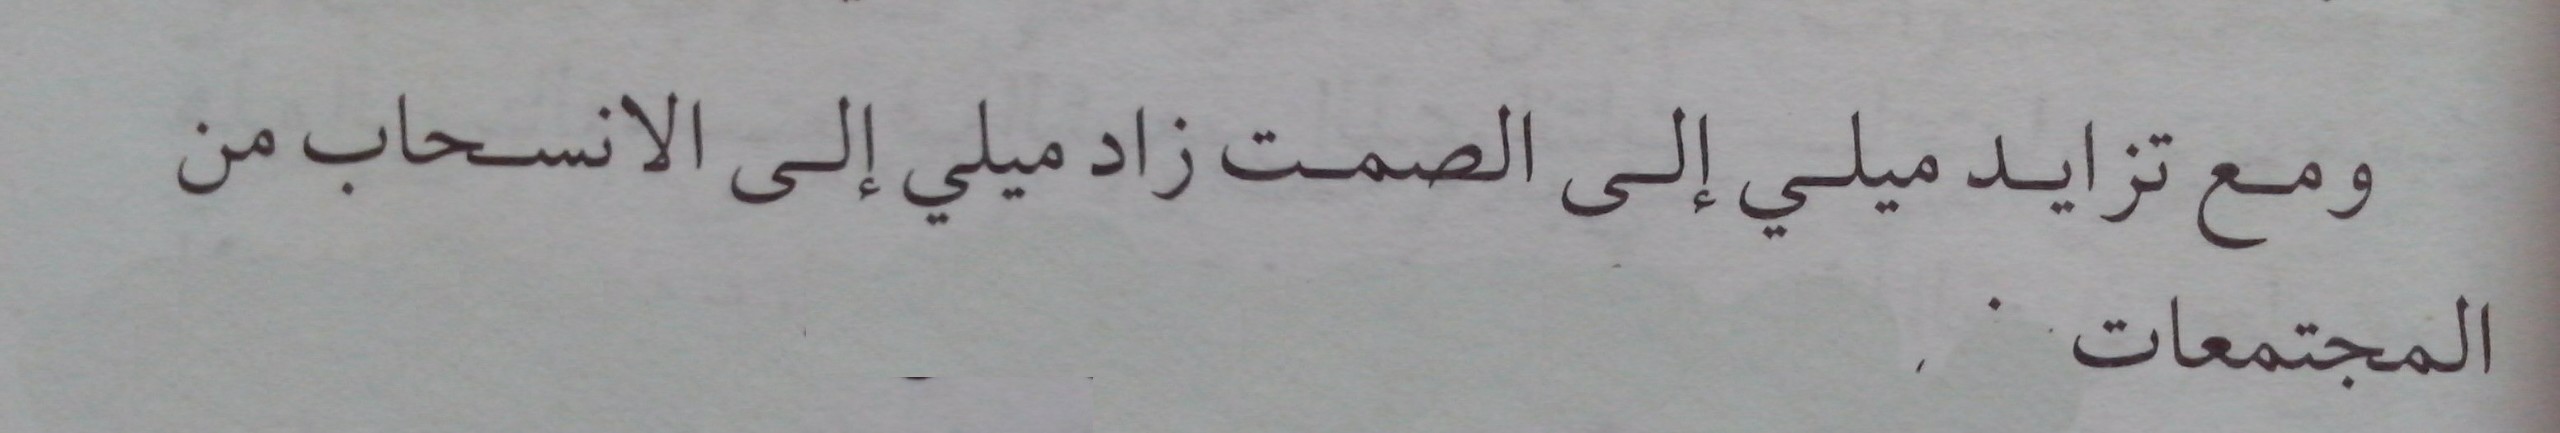 ومع تزايد ميلي إلى الصمت زاد ميلي إلى الانسحاب من
المجتمعات